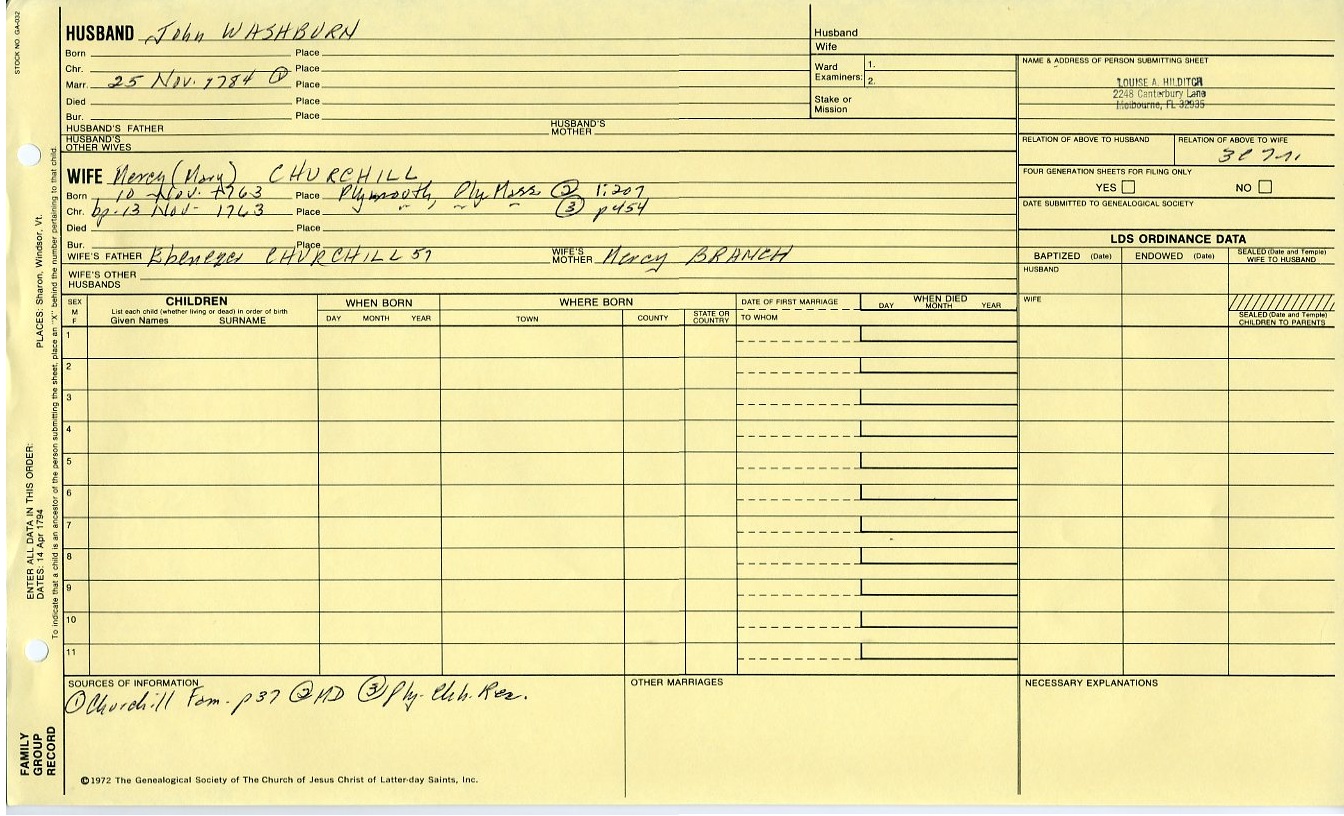 STOCK NO. GA-032
HUSBAND John WASHBURN
Born Place
Chr. Place
Marr. 25 Nov. 1784 ① Place
Died Place
Bur. Place
HUSBAND'S FATHER HUSBAND'S MOTHER
HUSBAND'S OTHER WIVES
Husband
Wife
Ward Examiners: 1.
2.
Stake or Mission
NAME & ADDRESS OF PERSON SUBMITTING SHEET
LOUISE A. HILDITCH
2248 Canterbury Lane
Melbourne, FL 32935
RELATION OF ABOVE TO HUSBAND RELATION OF ABOVE TO WIFE
FOUR GENERATION SHEETS FOR FILING ONLY
YES NO
DATE SUBMITTED TO GENEALOGICAL SOCIETY
WIFE Mercy (Mary) CHURCHILL
Born 10 Nov. 1763 Place Plymouth, Ply. Mass ② 1:207
Chr. bp. 13 Nov- 1763 Place ③ p454
Died Place
Bur. Place
WIFE'S FATHER Ebenezer CHURCHILL 57 WIFE'S MOTHER Mercy BRANCH
WIFE'S OTHER HUSBANDS
LDS ORDINANCE DATA
BAPTIZED (Date) ENDOWED (Date) SEALED (Date and Temple) WIFE TO HUSBAND
HUSBAND
WIFE
SEALED (Date and Temple) CHILDREN TO PARENTS
SEX M F
CHILDREN
List each child (whether living or dead) in order of birth
Given Names SURNAME
WHEN BORN
DAY MONTH YEAR
WHERE BORN
TOWN COUNTY STATE OR COUNTRY
DATE OF FIRST MARRIAGE
TO WHOM
WHEN DIED
DAY MONTH YEAR
1
2
3
4
5
6
7
8
9
10
11
SOURCES OF INFORMATION
① Churchill Fam. p37 ② MD ③ Ply. Chh. Rec.
OTHER MARRIAGES
NECESSARY EXPLANATIONS
©1972 The Genealogical Society of The Church of Jesus Christ of Latter-day Saints, Inc.
FAMILY GROUP RECORD
ENTER ALL DATA IN THIS ORDER:
DATES: 14 Apr 1794 PLACES: Sharon, Windsor, Vt.
To indicate that a child is an ancestor of the person submitting the sheet, place an "X" behind the number pertaining to that child.